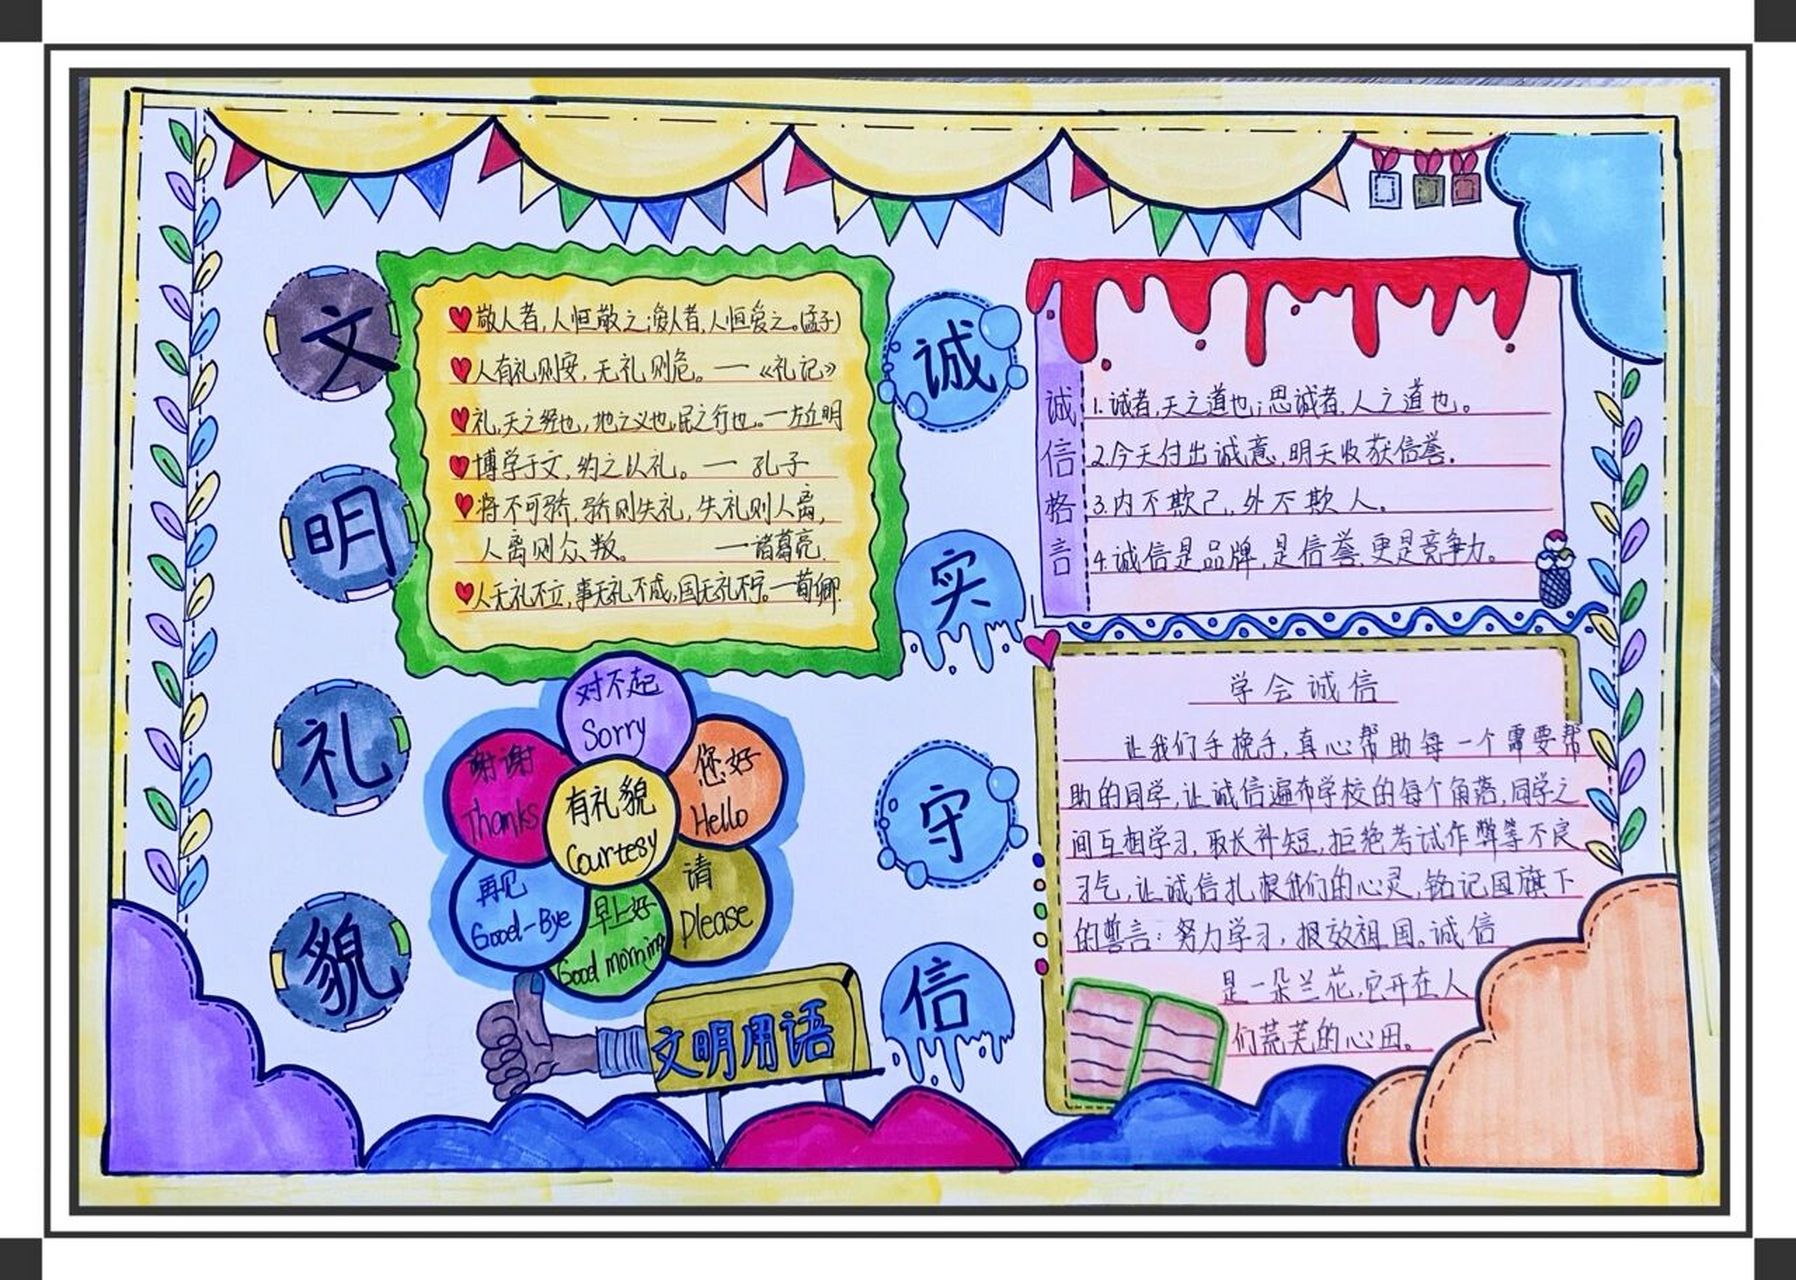 文
明
礼
貌
敬人者,人恒敬之;爱人者,人恒爱之。(孟子)
人有礼则安,无礼则危。—《礼记》
礼,天之经也,地之义也,民之行也。—左丘明
博学于文,约之以礼。— 孔子
将不可骄,骄则失礼,失礼则人离,
人离则众叛。 —诸葛亮
人无礼不立,事无礼不成,国无礼不宁。—荀卿
对不起
Sorry
谢谢
Thanks
您好
Hello
有礼貌
Courtesy
再见
Good-Bye
早上好
Good morning
请
Please
文明用语
诚
实
守
信
诚信格言
1.诚者,天之道也;思诚者,人之道也。
2.今天付出诚意,明天收获信誉.
3.内不欺己,外不欺人。
4.诚信是品牌,是信誉,更是竞争力。
学会诚信
让我们手挽手,真心帮助每一个需要帮
助的同学,让诚信遍布学校的每个角落,同学之
间互相学习,取长补短,拒绝考试作弊等不良
习气,让诚信扎根我们的心灵,铭记国旗下
的誓言:努力学习,报效祖国。诚信
是一朵兰花,它开在人
们荒芜的心田。